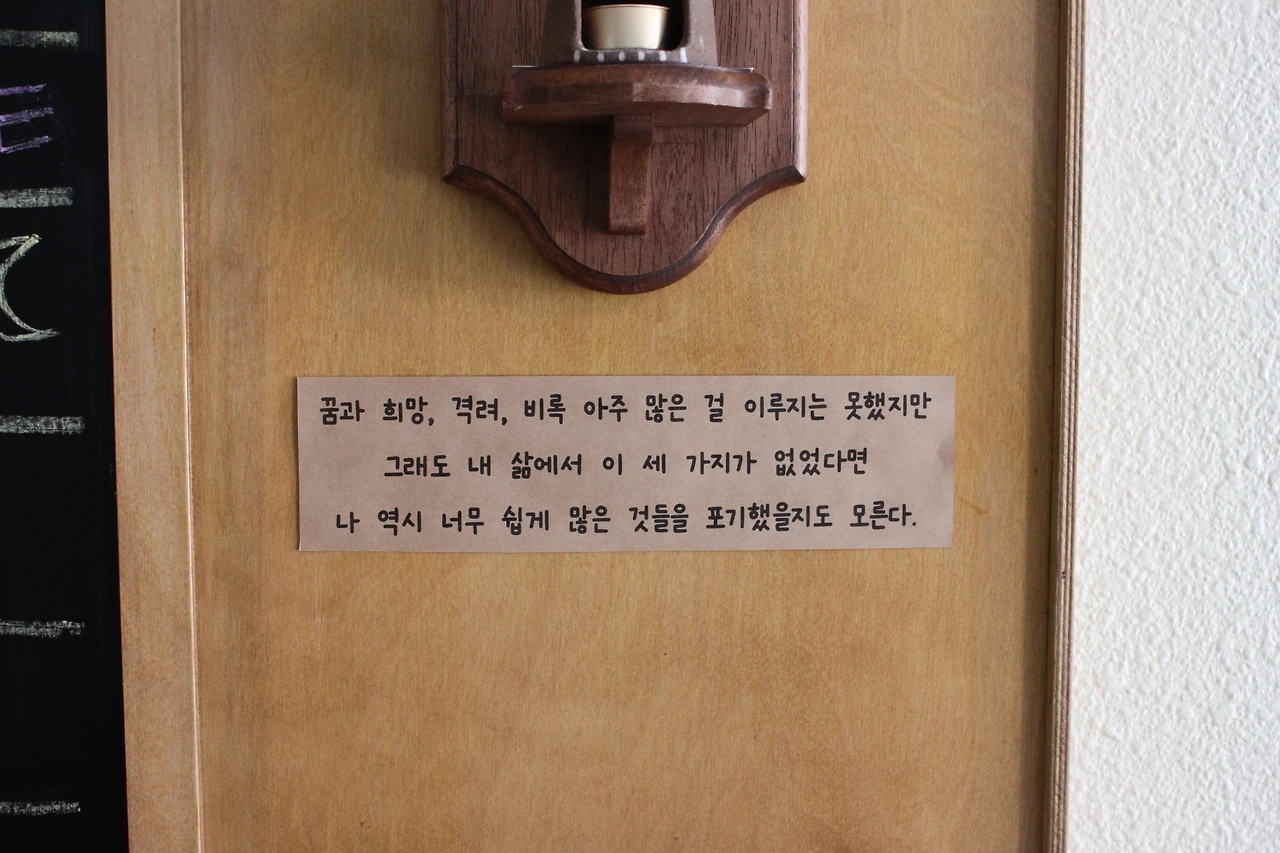 꿈과 희망, 격려, 비록 아주 많은 걸 이루지는 못했지만
그래도 내 삶에서 이 세 가지가 없었다면
나 역시 너무 쉽게 많은 것들을 포기했을지도 모른다.